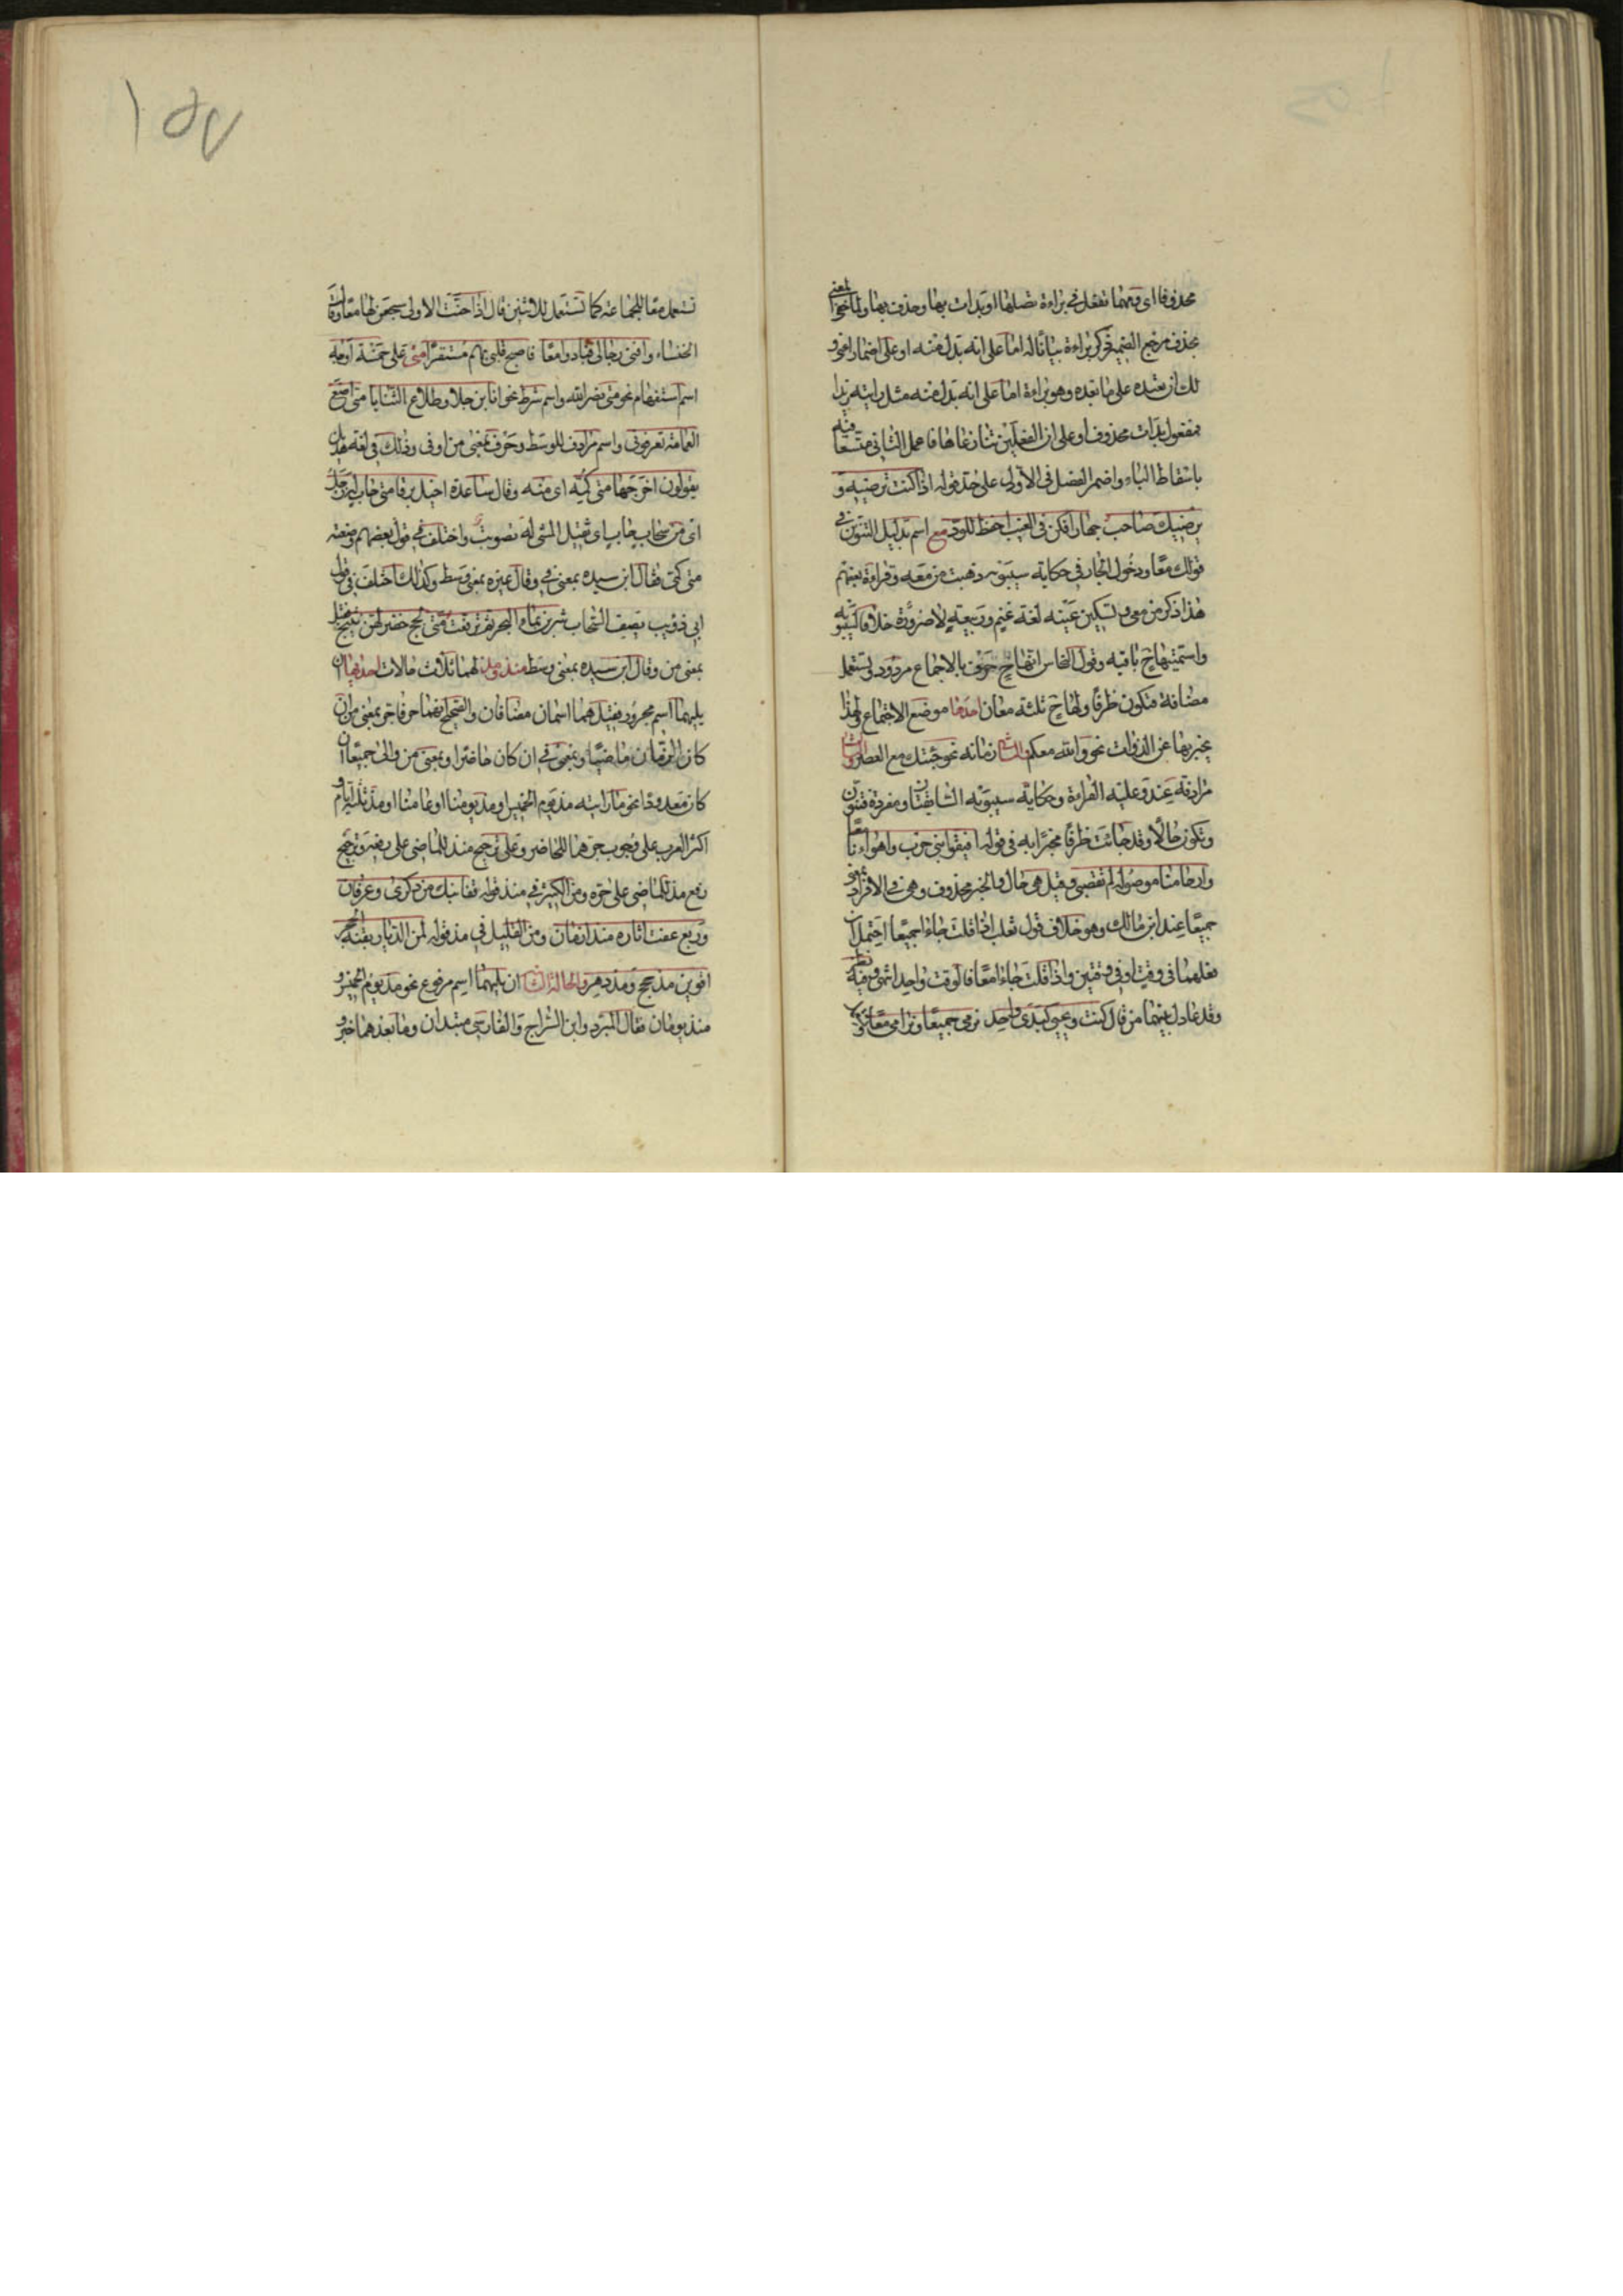 محذوفا اى ومهما تفعل فى براءة تصلها او بدات بها وحذف بها ولما خفى المعنى
بحذف مرجع الضمير ذكر براءة بيانا له اما على انه بدل منه او على اضمار اعنى و
لك ان تعيده على ما بعده وهو براءة اما على انه بدل منه مثل رايته زيدا
مفعول بدات محذوف او على ان الفعلين تنازعاها فاعمل الثانى متسعا فيه
باسقاط الباء واضمر الفضل فى الاولى على حد قوله اذا كنت ترضيه و
يرضيك صاحب جهارا فكن فى الغيب احفظ للود مع اسم بدليل التنوين فى
قولك معا ودخول الجار فى حكاية سيبويه ذهبت من معه وقراءة بعضهم
هذا ذكر من معى وتسكين عينه لغة غنم وربيعة لا ضرورة خلافا لسيبويه
واسميتها ح باقية وقول النحاس انها ح حرف بالاجماع مردود وتستعمل
مضافة فتكون ظرفا ولها ح ثلثة معان احدها موضع الاجتماع ولهذا
يخبر بها عن الذوات نحو والله معكم والثانى زمانه نحو جئتك مع العصر والثالث
مرادفة عند وعليه القراءة وحكاية سيبويه السابقتان ومفردة فتنون
وتكون حالا وقد جائت ظرفا مخبرا به فى قوله افيقوا بنى حرب واهواءنا معا
وارحامنا موصولة لم تقضب وقيل هى حال والخبر محذوف وهى فى الافراد بمعنى
جميعا عند ابن مالك وهو خلاف قول ثعلب اذا قلت جاءا جميعا احتمل ان
فعلهما فى وقت او فى وقتين واذا قلت جاءا معا فالوقت واحد انتهى وفيه نظر
وقد عادل بينهما من قال كنت ويحيى كيدى واحد نرمى جميعا ونرامى معا
تستعمل معا للجماعة كما تستعمل للاثنين قال اذا حنت الاولى سجعن لها معا وقالت
الخنساء وافنى رجالى فبادوا معا فاصبح قلبى بهم مستفزا متى على خمسة اوجه
اسم استفهام نحو متى نصر الله واسم شرط نحو انا ابن جلا وطلاع الثنايا متى اضع
العمامة تعرفونى واسم مرادف للوسط وحرف بمعنى من او فى وذلك فى لغة هذيل
يقولون اخرجها متى كمه اى منه وقال ساعدة اخيل برقا متى حاب له زجل
اى من سحاب حاب اى ثقيل المشى له تصويت واختلف فى قول بعضهم وضعته
متى كمى فقال ابن سيده بمعنى فى وقال غيره بمعنى وسط وكذلك اختلف فى قول
ابى ذؤيب يصف السحاب شربن بماء البحر ثم ترفعت متى لجج خضر لهن نئيج فقيل
بمعنى من وقال ابن سيده بمعنى وسط منذ ومذ لهما ثلاث حالات احديها ان
يليهما اسم مجرور فقيل هما اسمان مضافان والصحيح انهما حرفا جر بمعنى من ان
كان الزمان ماضيا وبمعنى فى ان كان حاضرا وبمعنى من والى جميعا ان
كان معدودا نحو ما رايته مذ يوم الخميس او مذ يومنا او عامنا او مذ ثلثة ايام و
اكثر العرب على وجوب جرهما للحاضر وعلى ترجيح منذ للماضى على رفعه وترجيح
رفع مذ للماضى على جره ومن الكثير فى منذ قوله قفا نبك من ذكرى وعرفان
وربع عفت اثاره منذ ازمان ومن القليل فى مذ قوله لمن الديار بقنة الحجر
اقوين مذ حجج ومذ دهر والحالة الثانية ان يليهما اسم مرفوع نحو مذ يوم الخميس و
منذ يومان فقال المبرد وابن السراج والفارسى مبتدان وما بعدهما خبر و